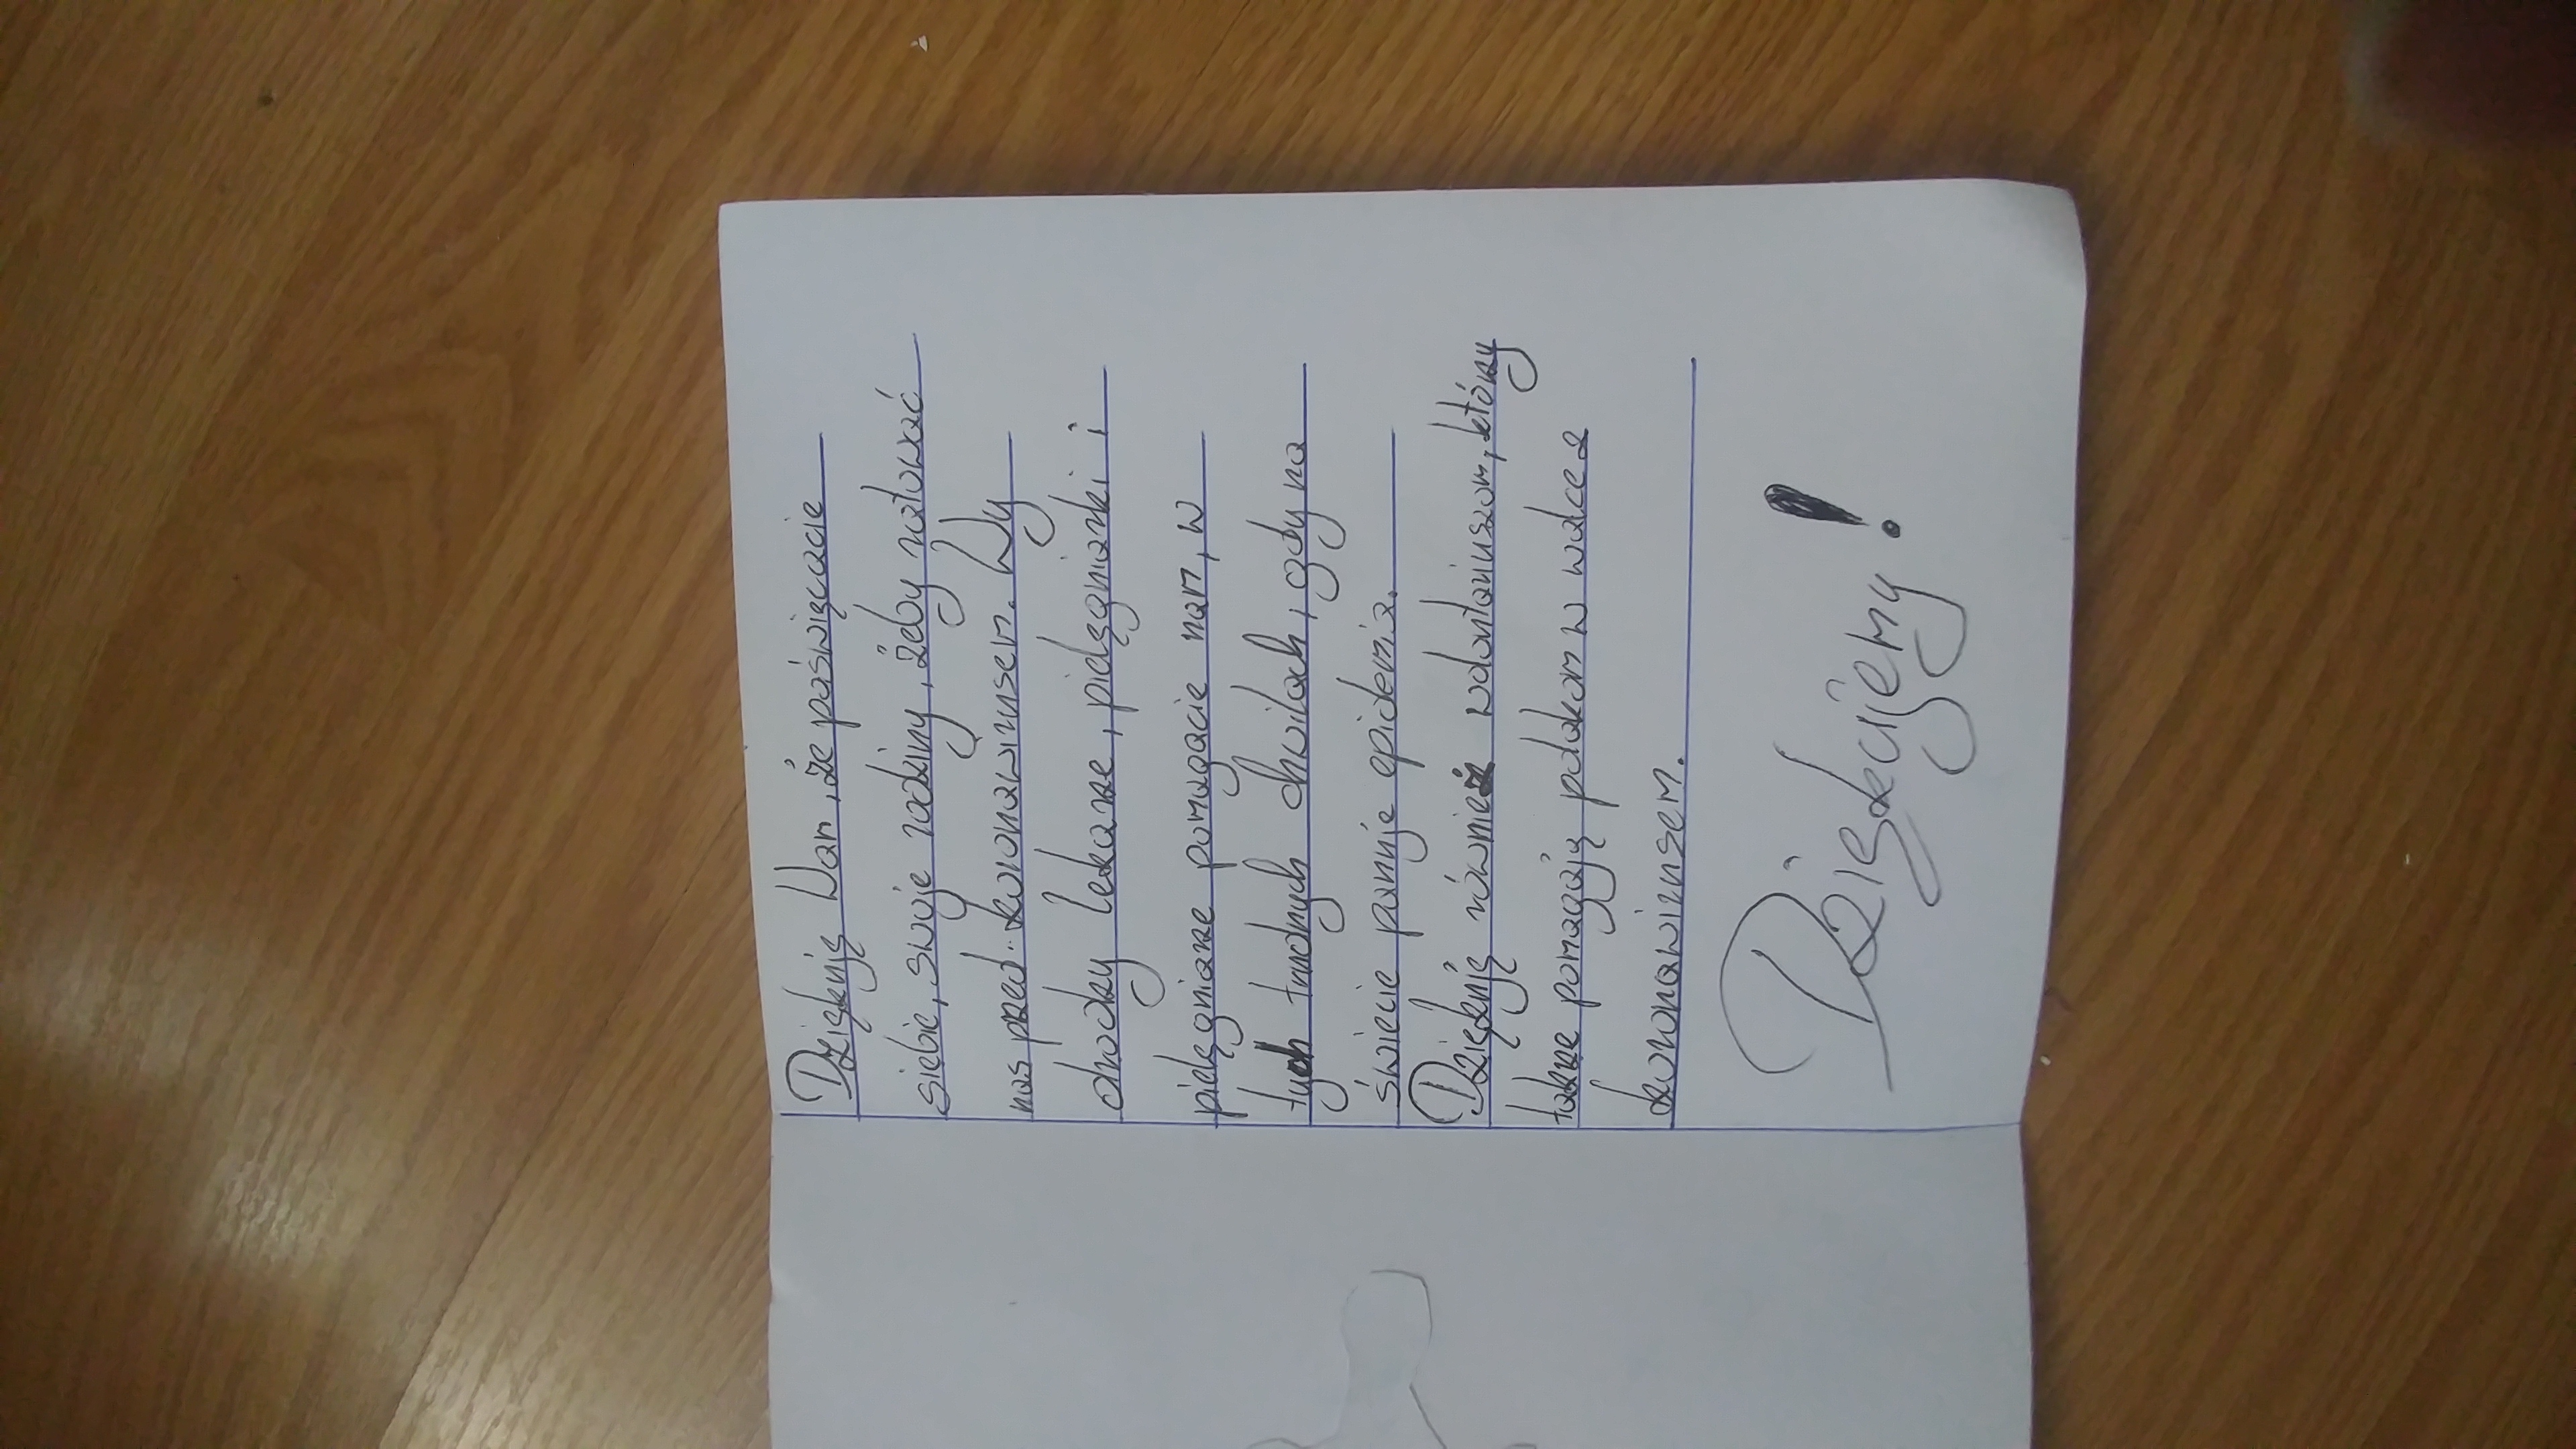 Dziękuję Wam, że poświęcacie
siebie, swoje rodziny, żeby ratować
nas przed koronawirusem. Wy
drodzy lekarze, pielęgniarki i
pielęgniarze pomagacie nam, w
tych trudnych chwilach, gdy na
świecie panuje epidemia.
Dziękuję również wolontariuszom, którzy
także pomagają polakom w walce z
koronawirusem.
Dziękujemy!